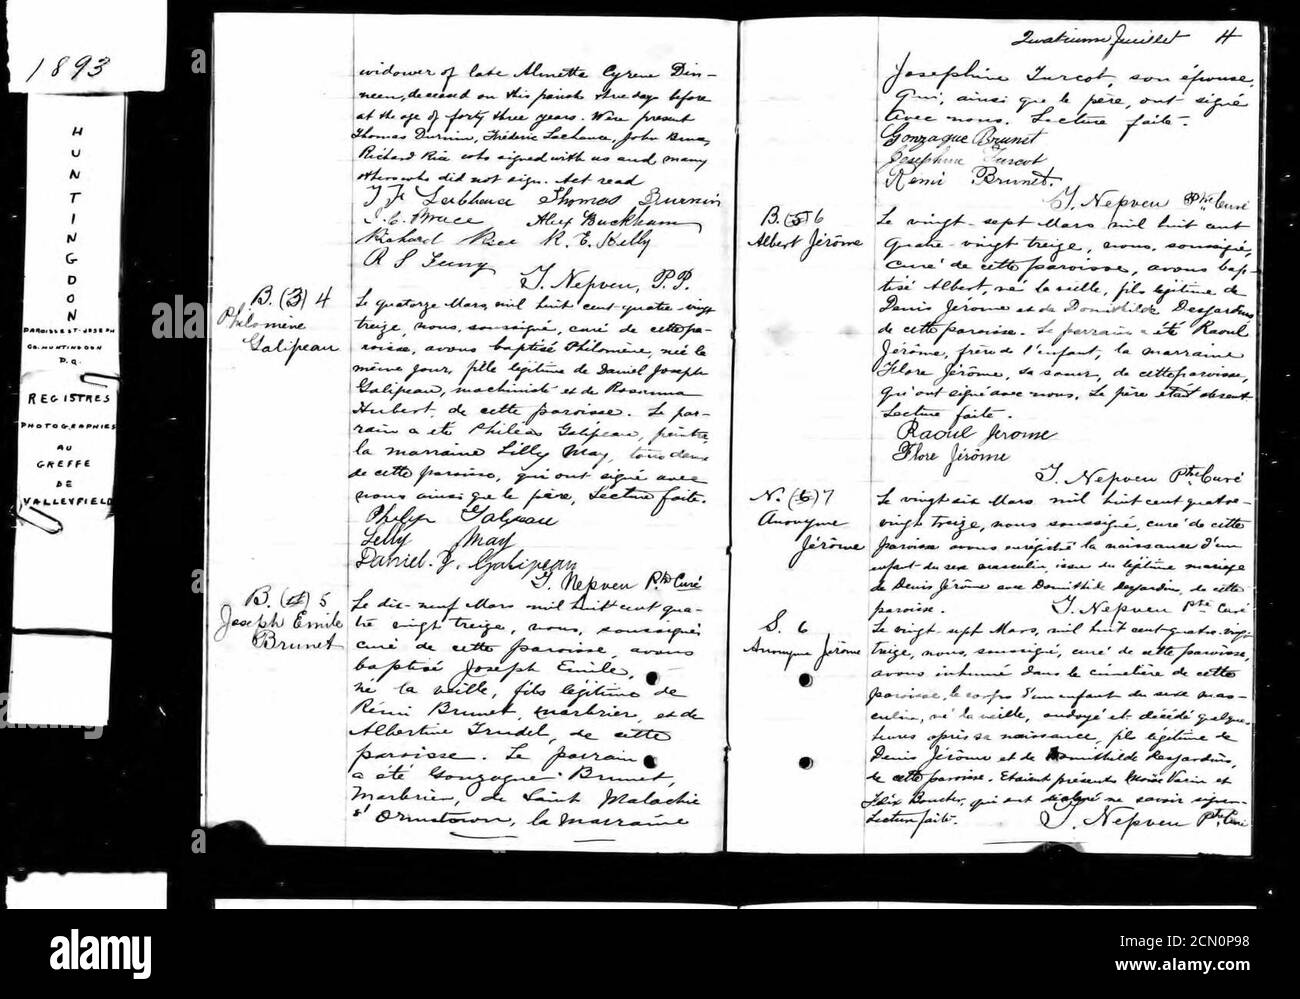 1893
HUNTINGDON
PAROISSE ST-JOSEPH
CO. HUNTINGDON
P.Q.
REGISTRES
PHOTOGRAPHIES
AU
GREFFE
DE
VALLEYFIELD
widower of late Almetta Cyrene Din-
neen, deceased on this parish three days before
at the age of forty three years. Were present
Thomas Durnin, Frédéric Lachance, John
Richard Rice who signed with us and many
others who did not sign. Act read
Thomas Durnin
Alex Buckham
Richard Rice R. E. Kelly
R S
T. Nepveu, P.P.
B. (3) 4
Philomène
Galipeau
Le quatorze Mars, mil huit cent quatre-vingt
treize, nous, soussigné, curé de cette pa-
roisse, avons baptisé Philomène, née le
même jour, fille légitime de Daniel Joseph
Galipeau, machiniste et de Rosanna
Hubert de cette paroisse. Le par-
rain a été Philias Galipeau, peintre,
la marraine Lilly May, tous deux
de cette paroisse, qui ont signé avec
nous ainsi que le père, Lecture faite.
Philip Galipeau
Lilly May
Daniel J. Galipeau
T. Nepveu Ptre Curé
B. (4) 5
Joseph Emile
Brunet
Le dix-neuf Mars mil huit cent qua-
tre vingt treize, nous, soussigné
curé de cette paroisse, avons
baptisé Joseph Emile,
né la veille, fils légitime de
Rémi Brunet, marbrier, et de
Albertine Trudel, de cette
paroisse. Le parrain
a été Gonzague Brunet,
Marbrier, de Saint Malachie
d'Ormstown, la marraine
Quatrième feuillet 4
Josephine Turcot, son épouse,
Qui, ainsi que le père, ont signé
avec nous. Lecture faite.
Gonzague Brunet
Josephine Turcot
Rémi Brunet.
T. Nepveu Ptre Curé
B. (5) 6
Albert Jérôme
Le vingt-sept Mars mil huit cent
quatre-vingt treize, nous, soussigné,
curé de cette paroisse, avons bap-
tisé Albert, né la veille, fils légitime de
Denis Jérôme et de Domithilde Desjardins
de cette paroisse. Le parrain a été Raoul
Jérôme, frère de l'enfant, la marraine
Flore Jérôme, sa soeur, de cette paroisse,
qui ont signé avec nous. Le père était absent.
Lecture faite.
Raoul Jerome
Flore Jérôme
T. Nepveu Ptre Curé
N. (6) 7
Anonyme
Jérôme
Le vingt six Mars mil huit cent quatre-
vingt treize, nous soussigné, curé de cette
paroisse avons enrégistré la naissance d'un
enfant du sexe masculin, issu du légitime mariage
de Denis Jérôme avec Domithilde Desjardins, de cette
paroisse. T. Nepveu Ptre Curé
S. 6
Anonyme Jérôme
Le vingt sept Mars, mil huit cent quatre-vingt
treize, nous, soussigné, curé de cette paroisse,
avons inhumé dans le cimetière de cette
paroisse, le corps d'un enfant du sexe mas-
culin, né la veille, ondoyé et décédé quelques
heures après sa naissance, fils légitime de
Denis Jérôme et de Domithilde Desjardins,
de cette paroisse. Etaient présents Moïse Varin et
Félix Boucher, qui ont déclaré ne savoir signer.
Lecture faite. T. Nepveu Ptre Curé
alamy
Image ID: 2CN0P98
www.alamy.com